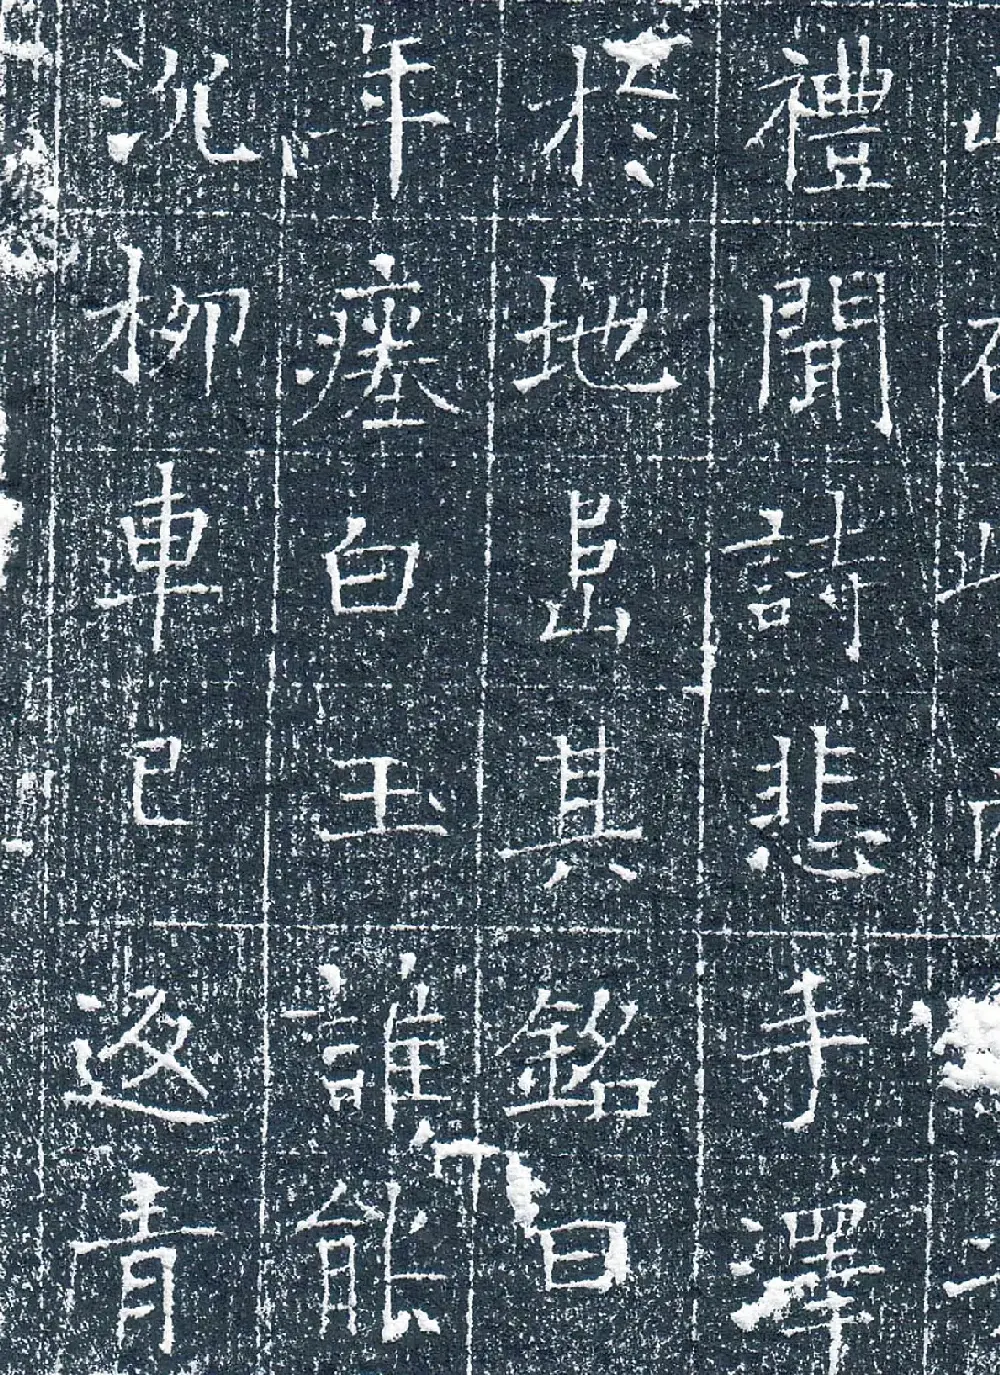 禮聞詩悲手澤
於地峊其銘曰
年瘞白玉誰能
況柳車已返青